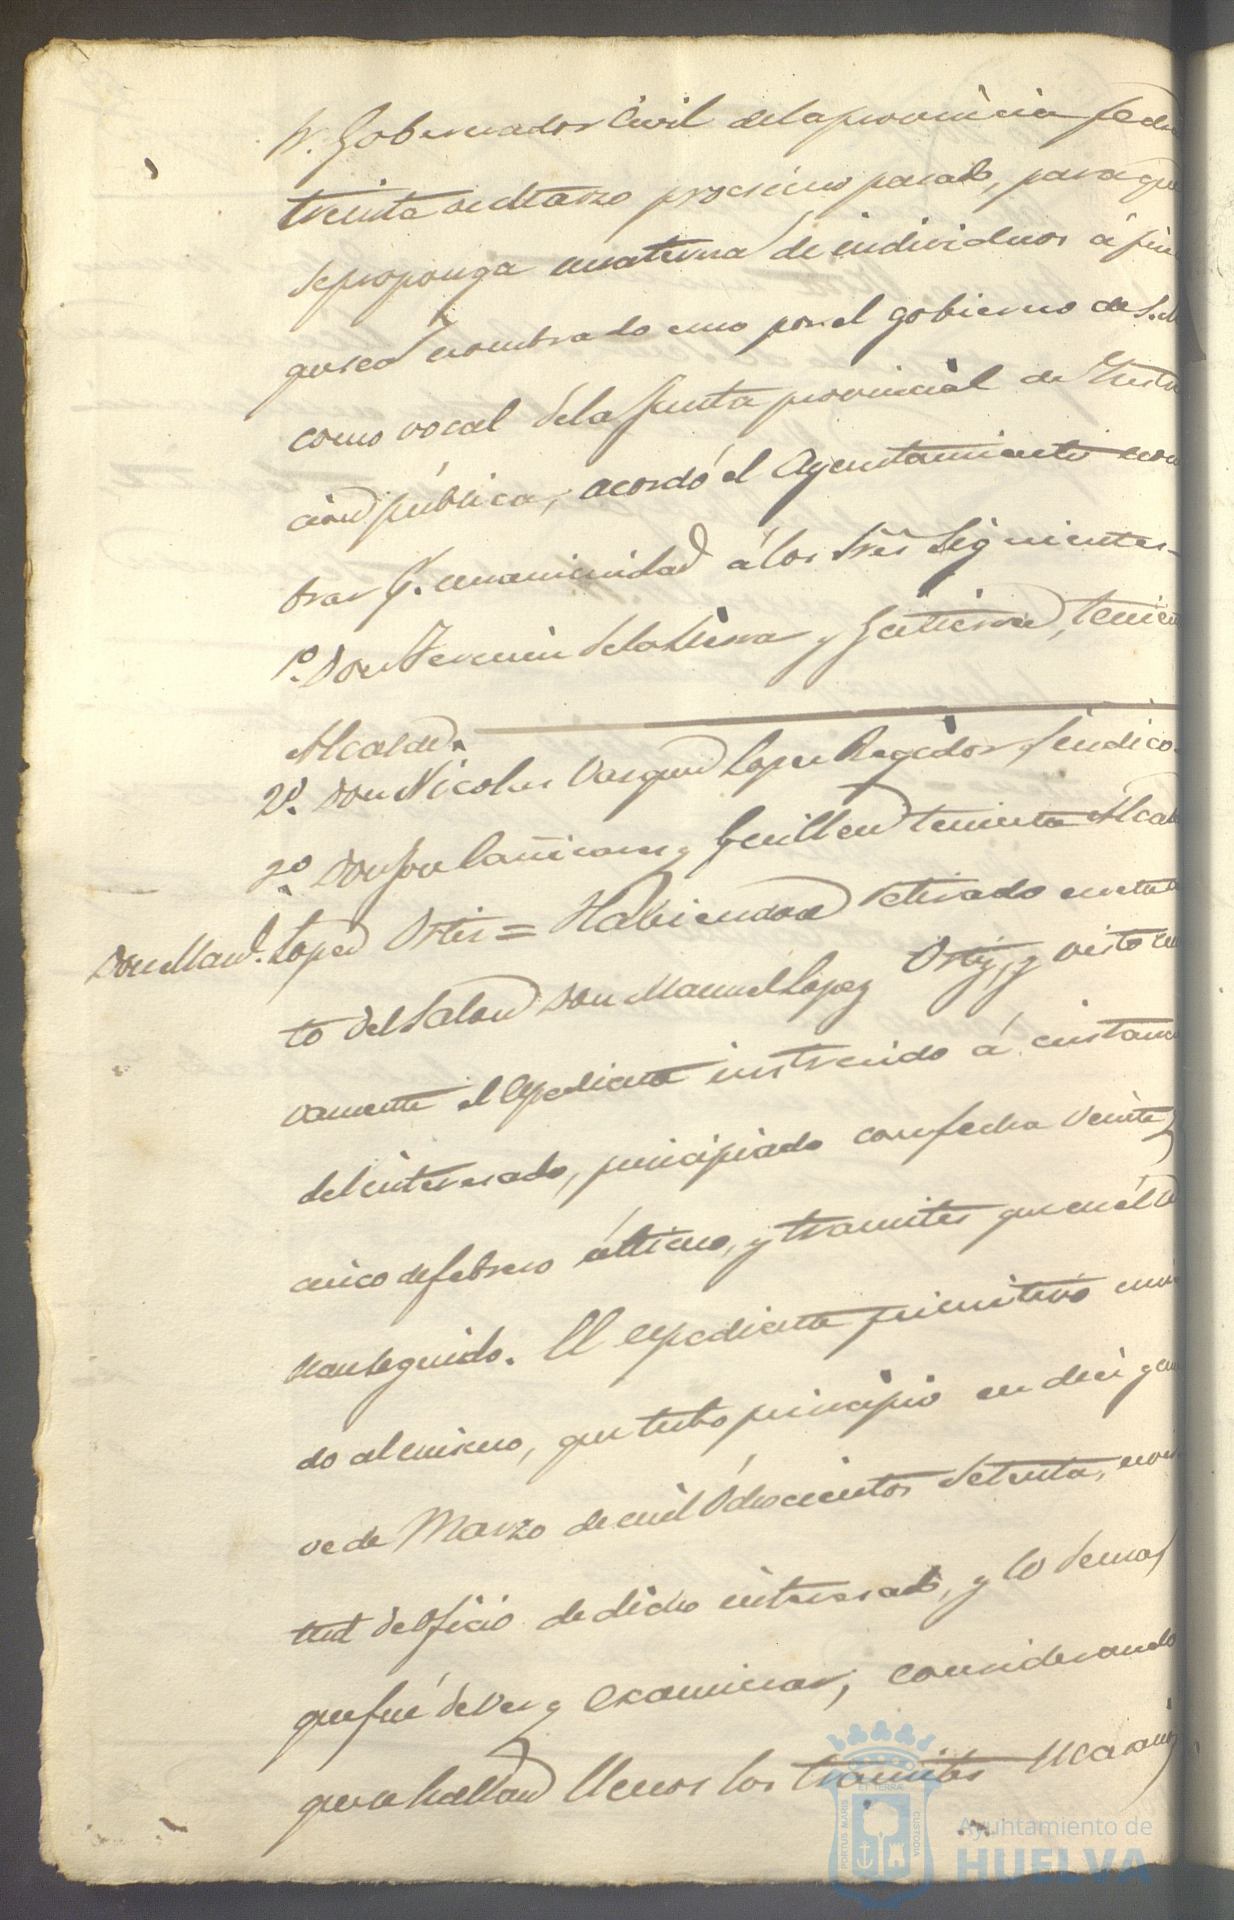 Sr. Gobernador Civil de la provincia fecha
treinta de Marzo proximo pasado, para que
se proponga una terna de individuos á fin
que sea nombrado uno por el gobierno de S.M.
como vocal de la Junta provincial de Instruc
cion publica, acordó el Ayuntamiento nom
brar p.r unanimidad á los Sres. Siguientes
1º Don Fermin de la Sierra y Gutierrez, teniente
Alcalde.
2º Don Nicolas Vazquez Lopez Regidor Sindico
3º Don Jose Cañizares y Guillen teniente Alcalde
Don Man.l Lopez Ortiz = Habiendose retirado en este ac
to del Salon Don Manuel Lopez Ortiz, y visto nue
vamente el espediente instruido á instancia
del interesado, principiado con fecha veinte y
cinco de febrero último, y tramites que en él se
han seguido. El espediente primitivo uni
do al mismo, que tubo principio en diez y nue
ve de Marzo de mil ochocientos Setenta, en vir
tud de Oficio de dicho interesado, y lo demas
que fué de ver y examinar, considerando
que se hallan llenos los tramites
PORTUS MARIS ET TERRAE CUSTODIA
Ayuntamiento de
HUELVA